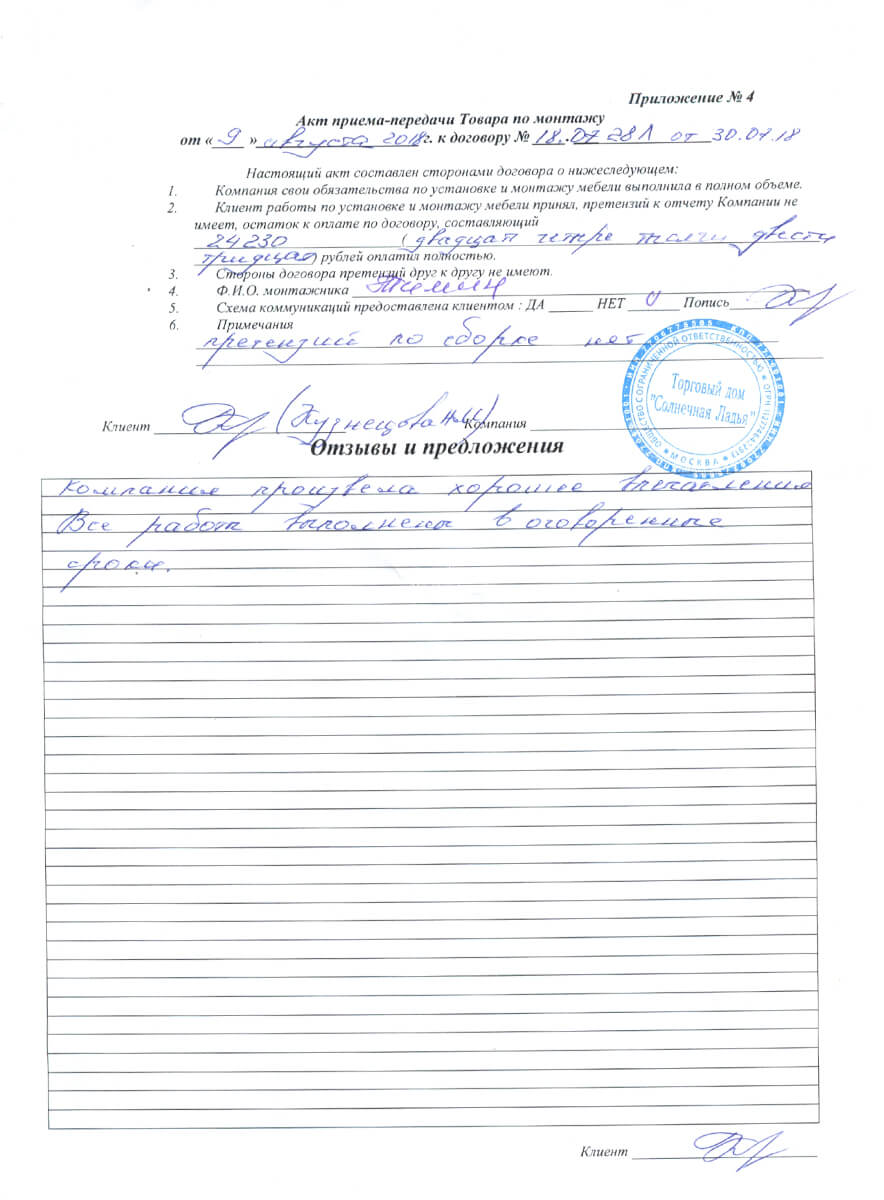 Приложение № 4
Акт приема-передачи Товара по монтажу
от « 9 » августа 2018г. к договору № 18.07 28Л от 30.07.18
Настоящий акт составлен сторонами договора о нижеследующем:
1. Компания свои обязательства по установке и монтажу мебели выполнила в полном объеме.
2. Клиент работы по установке и монтажу мебели принял, претензий к отчету Компании не
имеет, остаток к оплате по договору, составляющий
24230 (двадцат четре тысячи двести
тридцат) рублей оплатил полностью.
3. Стороны договора претензий друг к другу не имеют.
4. Ф.И.О. монтажника
5. Схема коммуникаций предоставлена клиентом : ДА НЕТ Попись
6. Примечания
претензий по сборке нет
ОБЩЕСТВО С ОГРАНИЧЕННОЙ ОТВЕТСТВЕННОСТЬЮ
Торговый дом
"Солнечная Ладья"
МОСКВА
Клиент (Кузнецова Компания
Отзывы и предложения
Компания произвела хорошее впечатление
Все работы выполнены в оговоренные
сроки.
Клиент